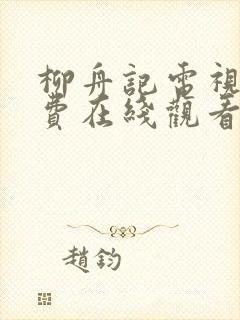 柳舟記電視
費在綫觀看
趙鈞